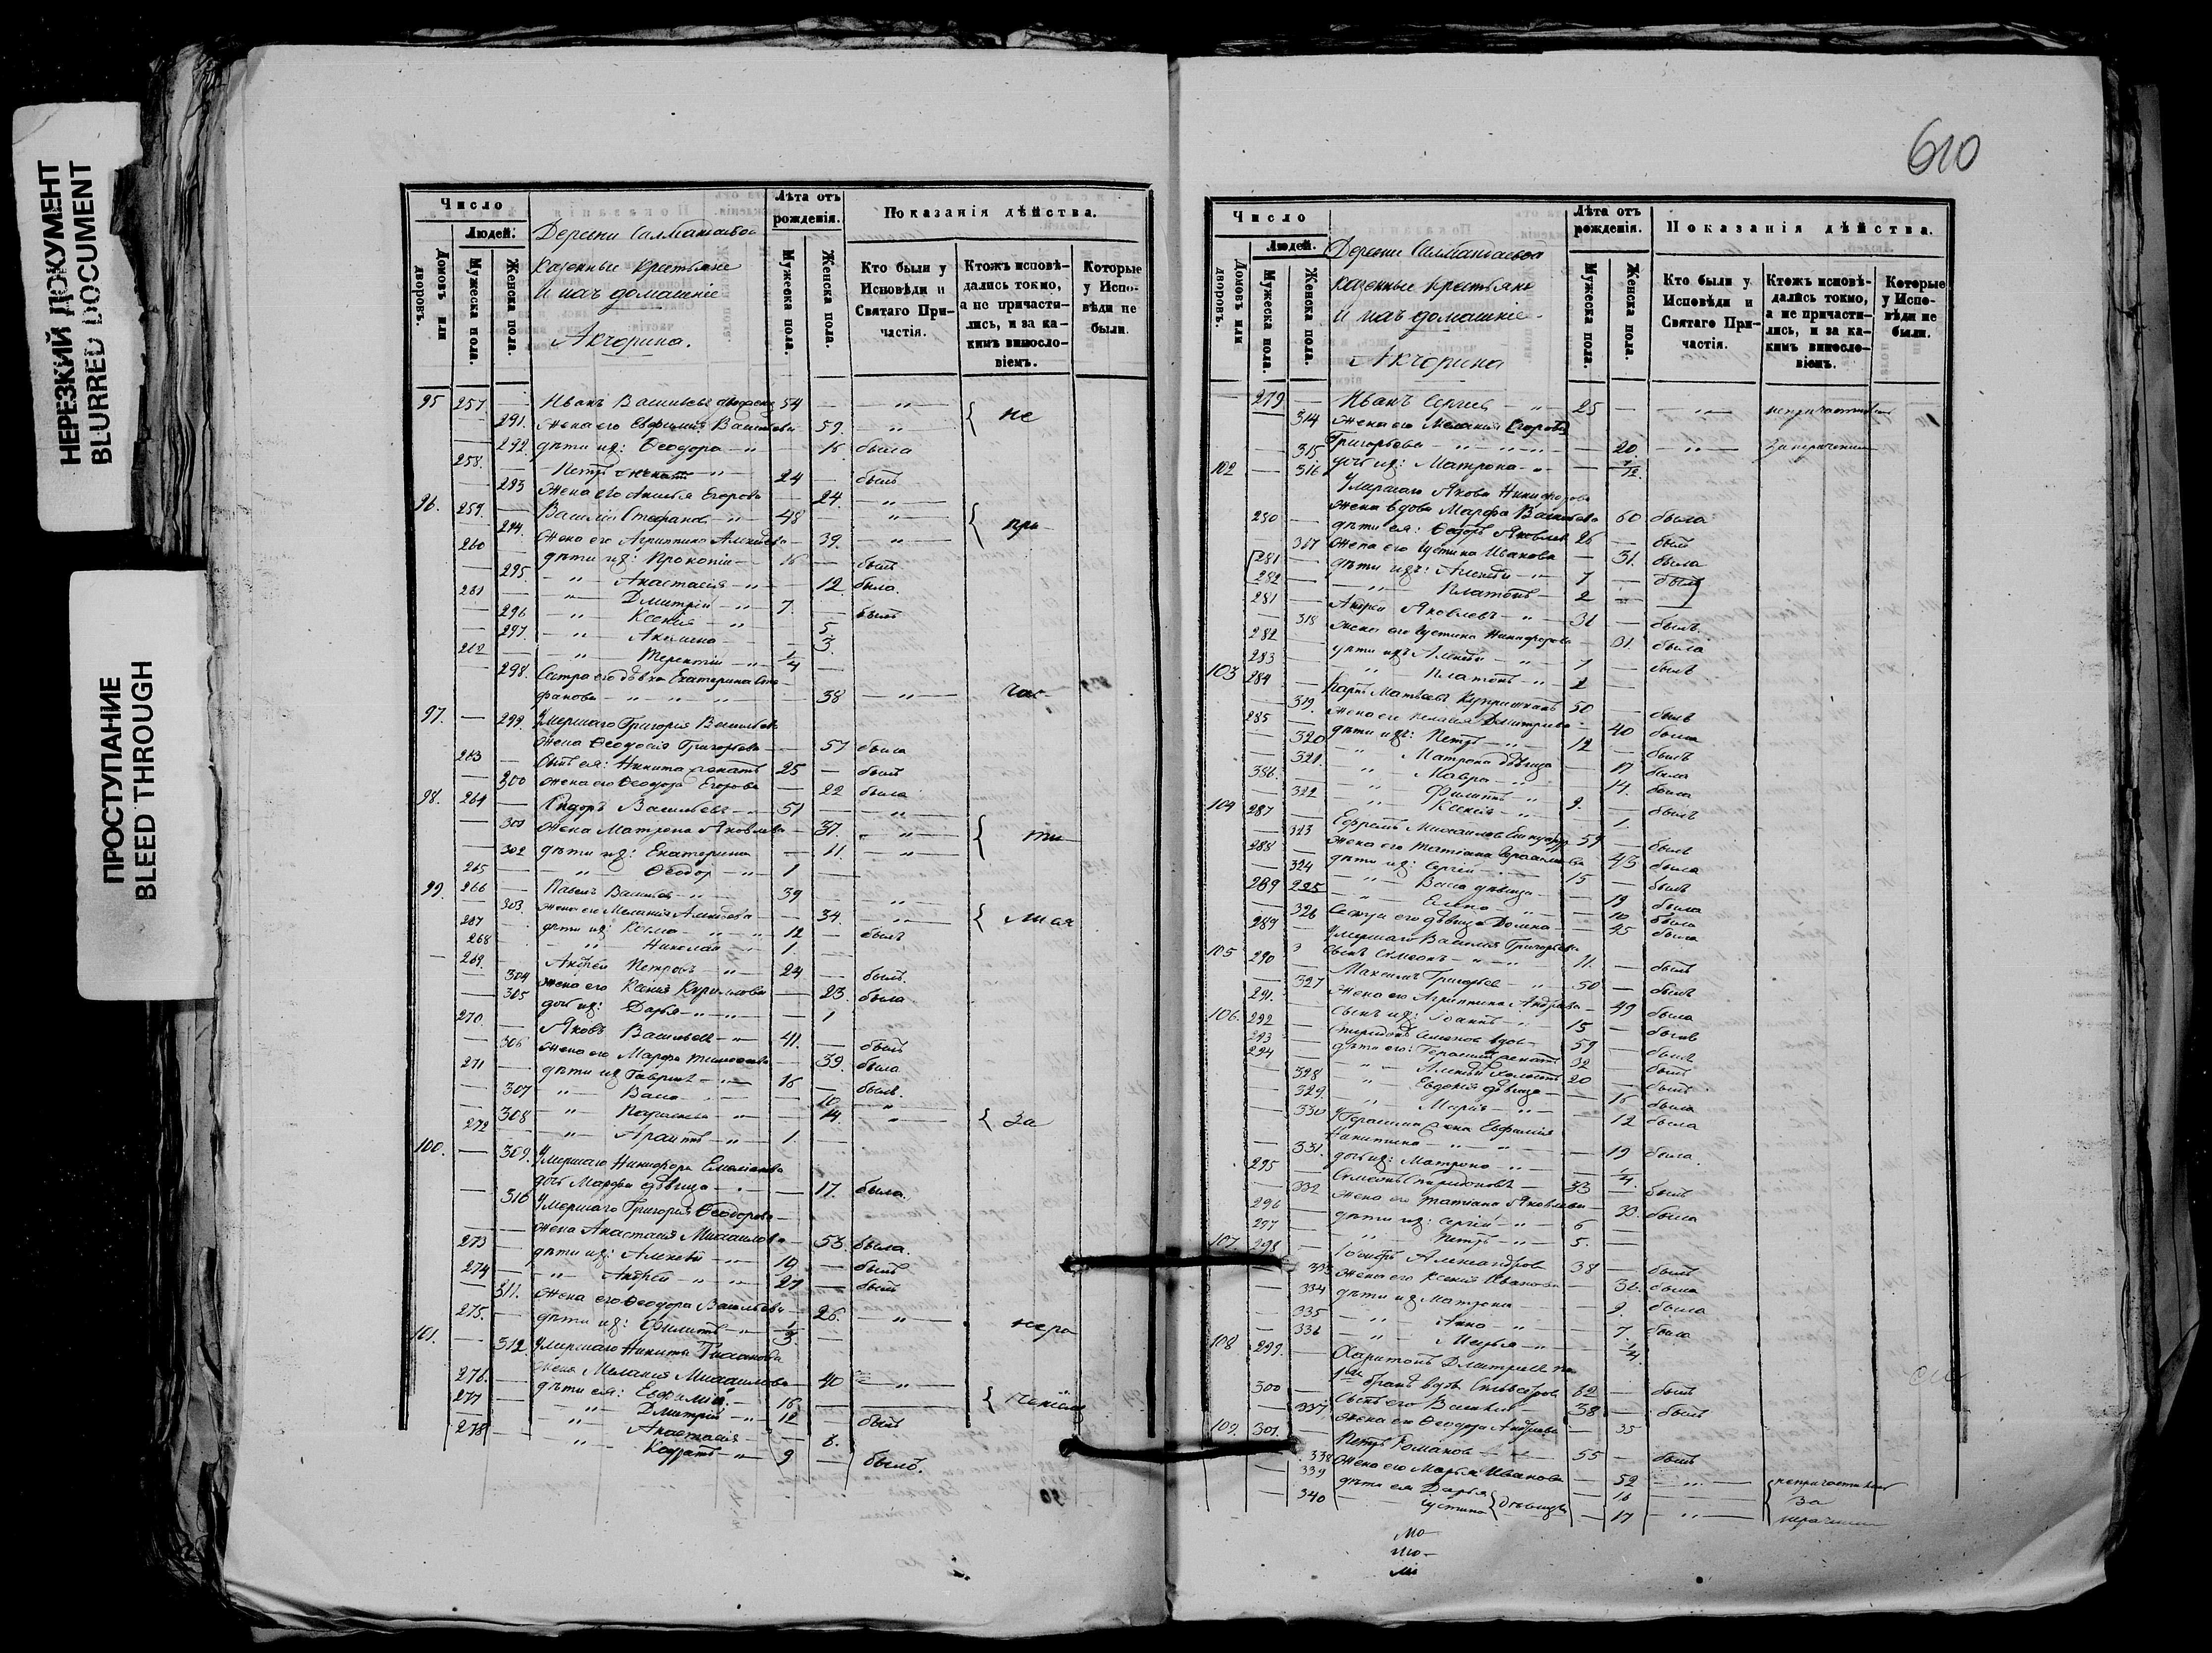 НЕРЕЗКИЙ ДОКУМЕНТ
BLURRED DOCUMENT
ПРОСТУПАНИЕ
BLEED THROUGH
Число
Людей.
Домовъ или дворовъ.
Мужеска пола.
Женска пола.
Деревни
казенные крестьяне
и ихъ домашніе
Акчорина.
Лѣта отъ рожденія.
Мужеска пола.
Женска пола.
Показанія дѣйства.
Кто были у Исповѣди и Святаго Причастія.
Ктожъ исповѣдались токмо, а не причастились, и за какимъ винословіемъ.
Которые у Исповѣди не были.
95 257 Иванъ Васильевъ 54 — „ — не
291. жена его Евфимия Васильева 59. — „ —
292. дѣти их: Ѳеодора — „ — 16 была
258. Петръ женатъ — „ — 24 — былъ
293 Жена его Егорова 24. — „ —
96. 259. Василій Стефановъ — „ — 48 — „ — при
294. Жена его Агриппина Алексѣева 39. — „ —
260 дѣти их: Прокопій 16 — былъ
295. — „ — Анастасія — „ — 12 была.
261 — „ — Дмитрій — „ — 7. — былъ
296 — „ — Ксенія — „ — 5
297. — „ — Акилина 3.
262 — „ — Терентій — „ — 1/4
298. Сестра его дѣвка Екатерина Сте-
фанова — „ — 38 — „ — час
97. — 299. Умершаго Григорія Васильева
жена Ѳеодосія Григорьева 57 была
263 Сынъ ея: Никита женатъ 25 — былъ
300 жена его Ѳеодора Егорова 22 была
98. 264 Сидоръ Васильевъ 51 — „ — ти
301 Жена Матрона Яковлева 37. — „ —
302 дѣти их: Екатерина 11. — „ —
265 — „ — Ѳеодор — „ — 1
99. 266 Павелъ Васильевъ 39 — „ — лися
303. Жена его Меланія Алексѣева 34. — „ —
267 дѣти их: Козма 12 — былъ
268 — „ — Николай 1.
269. Андрей Петровъ — „ — 24 — былъ.
304 жена его Ксенія Кирилова 23. была
305 дочь их: Дарья — „ — 1
270. Яковъ Васильевъ — „ — 41. — былъ
306 Жена его Марфа Тимоѳеева 39. была
271 дѣти их Гавриилъ — „ — 16 — былъ.
307 — „ — Васа 10. — „ —
308 — „ — 14. — „ — За
272 — „ — — „ — 1.
100. — 309. Умершаго Никифора Емельянова
дочь Марфа дѣвица 17. была.
310 Умершаго Григорія Ѳеодорова
Жена Анастасія Михаилова 53. была.
273 дѣти их: Алексѣй — „ — 19 — былъ
274 — „ — Андрей — „ — 27 — былъ
311. Жена его Ѳеодора Васильева 26. — „ — нера
275. дѣти их: Филипъ — „ — 1/3.
101. — 312. Умершаго Никиты
жена Меланія Михаилова 40 — „ —
276. дѣти ея: Евфимій 16 ченіемъ
277 — „ — Дмитрій — „ — 12 — былъ
— „ — Анастасія 6.
278 — „ — Кодратъ — „ — 9 — былъ.
610
Число
Людей.
Домовъ или дворовъ.
Мужеска пола.
Женска пола.
Деревни
казенные крестьяне
и ихъ домашніе
Акчорина
Лѣта отъ рожденія.
Мужеска пола.
Женска пола.
Показанія дѣйства.
Кто были у Исповѣди и Святаго Причастія.
Ктожъ исповѣдались токмо, а не причастились, и за какимъ винословіемъ.
Которые у Исповѣди не были.
279 Иванъ Сергѣевъ — „ — 25 — „ —
314 Жена его Меланія Егорова
Григорьева — „ — 20. — „ —
315 дочь их: Матрона — „ —
102 — 316 Умершаго Якова Никифорова
жена вдова Марфа Васильева 60 была
280 дѣти ея: Ѳедоръ Яковлев 26 — былъ
317 жена его Іустина Иванова 31. была
281 дѣти их: Алексѣй — „ — 7 — былъ
282 — „ — Платонъ 2
281 Андрей Яковлевъ — „ — 31 — былъ.
318 жена его Іустина Никифорова 31. была
282 дѣти ихъ Алексѣй — „ — 7 — былъ
283 — „ — Платонъ — „ — 2
103 284 Карпъ Матвѣевъ 50 — былъ
319. Жена его Дмитріева 40 была
285 дѣти их: Петръ — „ — 12 — былъ
320 — „ — Матрона дѣвица 17 была
321. — „ — Мавра — „ — 14. была
386. — „ — Филипъ — „ — 9. — былъ
322 — „ — Ксенія — „ — 1.
104 287 Ефремъ Михаиловъ 59 — былъ
323 жена его Татіана Герасимова 43 была
288 дѣти их: Сергѣй 15 — былъ
324 — „ — Васа дѣвица 19 была
289 325 — „ — Елена 10 была
326 Сестра его дѣвица Домна 45 была
289 Умершаго Василія Григорьева
Сынъ Симеонъ — „ — 11. — былъ
105 290 Максимъ Григорьев — „ — 50 — былъ
327 Жена его Агриппина Андреева 49 была
291. Сынъ их: Іоаннъ — „ — 15 — былъ
106. 292 Спиридонъ Семенов вдов 59 — былъ
293 дѣти его: Герасимъ женатъ 32 — былъ
294 — „ — Алексѣй холостъ 20 — былъ
328 — „ — Евдокія дѣвица 16 была
329. — „ — Марія — „ — 12 была
330 У Герасима жена Евфимія
Никитина — „ — 19 была.
331. дочь их: Матрона — „ — 1/4.
295 Симеонъ Спиридоновъ 33 — былъ
332 Жена его Татіана Яковлева 33. была
296 дѣти их: Сергѣй — „ — 6
297 — „ — Петръ — „ — 5.
107. 298 Александров 38 — былъ
333 Жена его Ксенія Иванова 36. была
334 дѣти их Матрона 9. была
335 — „ — Анна — „ — 7. была
336 — „ — Марья — „ — 1/4.
108 299. Харитонъ Дмитріев
62 — былъ
300 Сынъ его Василій 38 — былъ
337 Жена его Ѳеодора Андреева 35
109. 301. Петръ Романовъ 55 — былъ
338 Жена его Марья Иванова 52 — „ —
339 дѣти ея Дарья 16 За
340 Іустина дѣвицы 17 — „ —